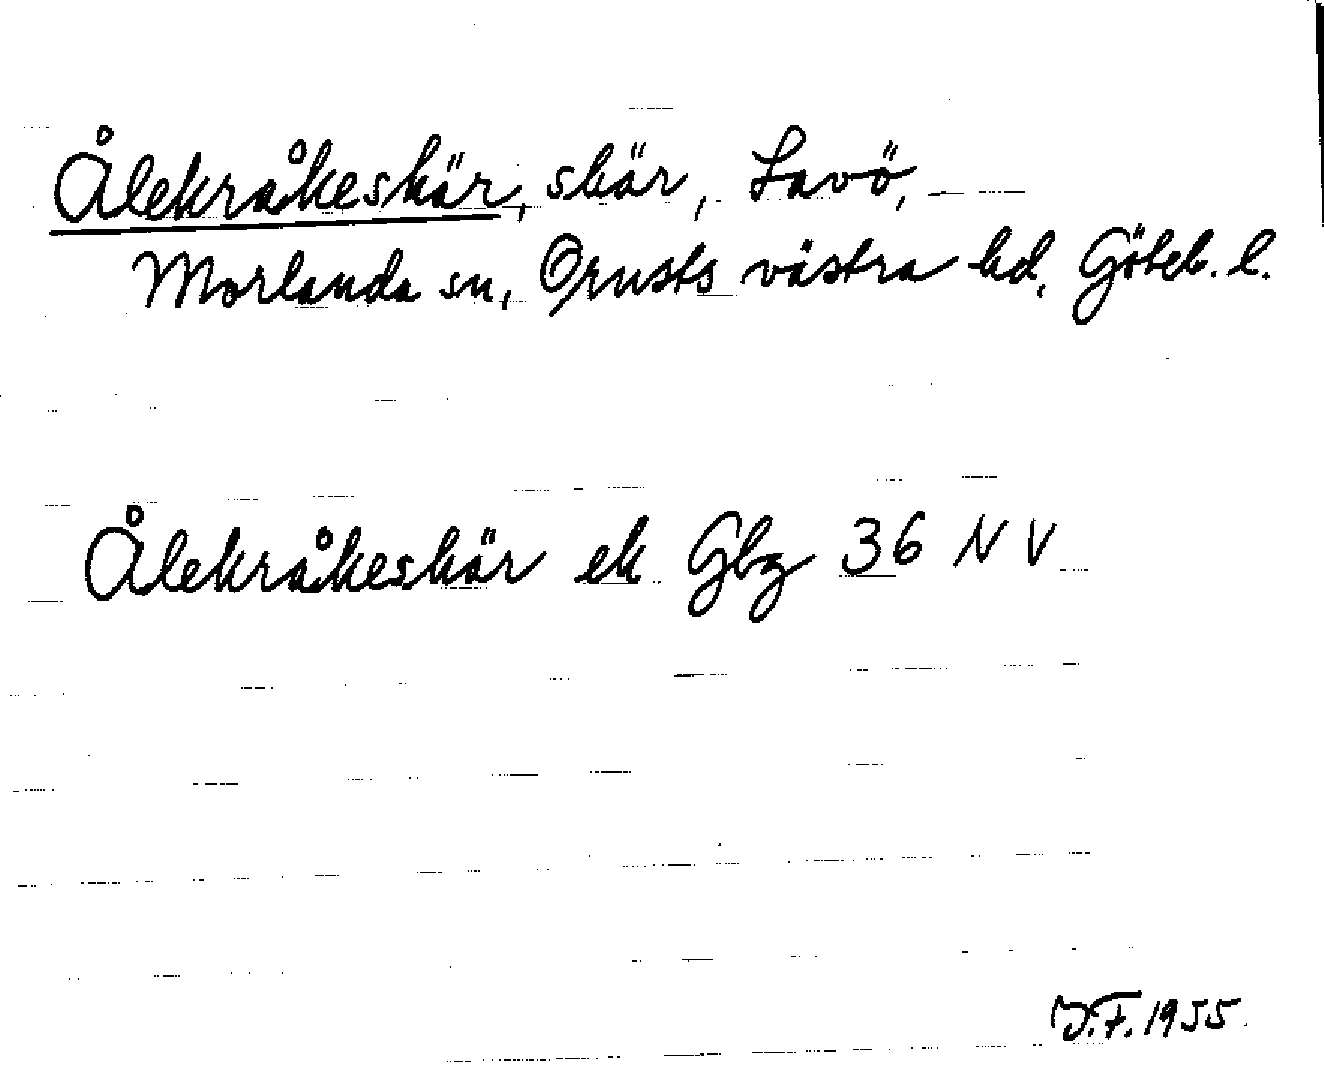 Ålekråkeskär, skär, Lavö,
Morlanda sn, Orusts västra hd, Göteb. l.
Ålekråkeskär ek Gbg 36 NV
V.F. 1955